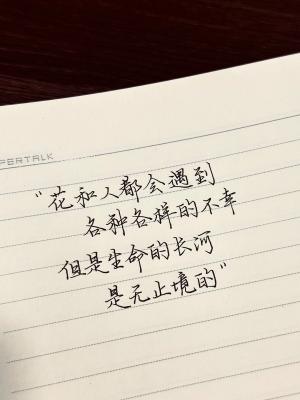 PERTALK
“花和人都会遇到
各种各样的不幸
但是生命的长河
是无止境的”